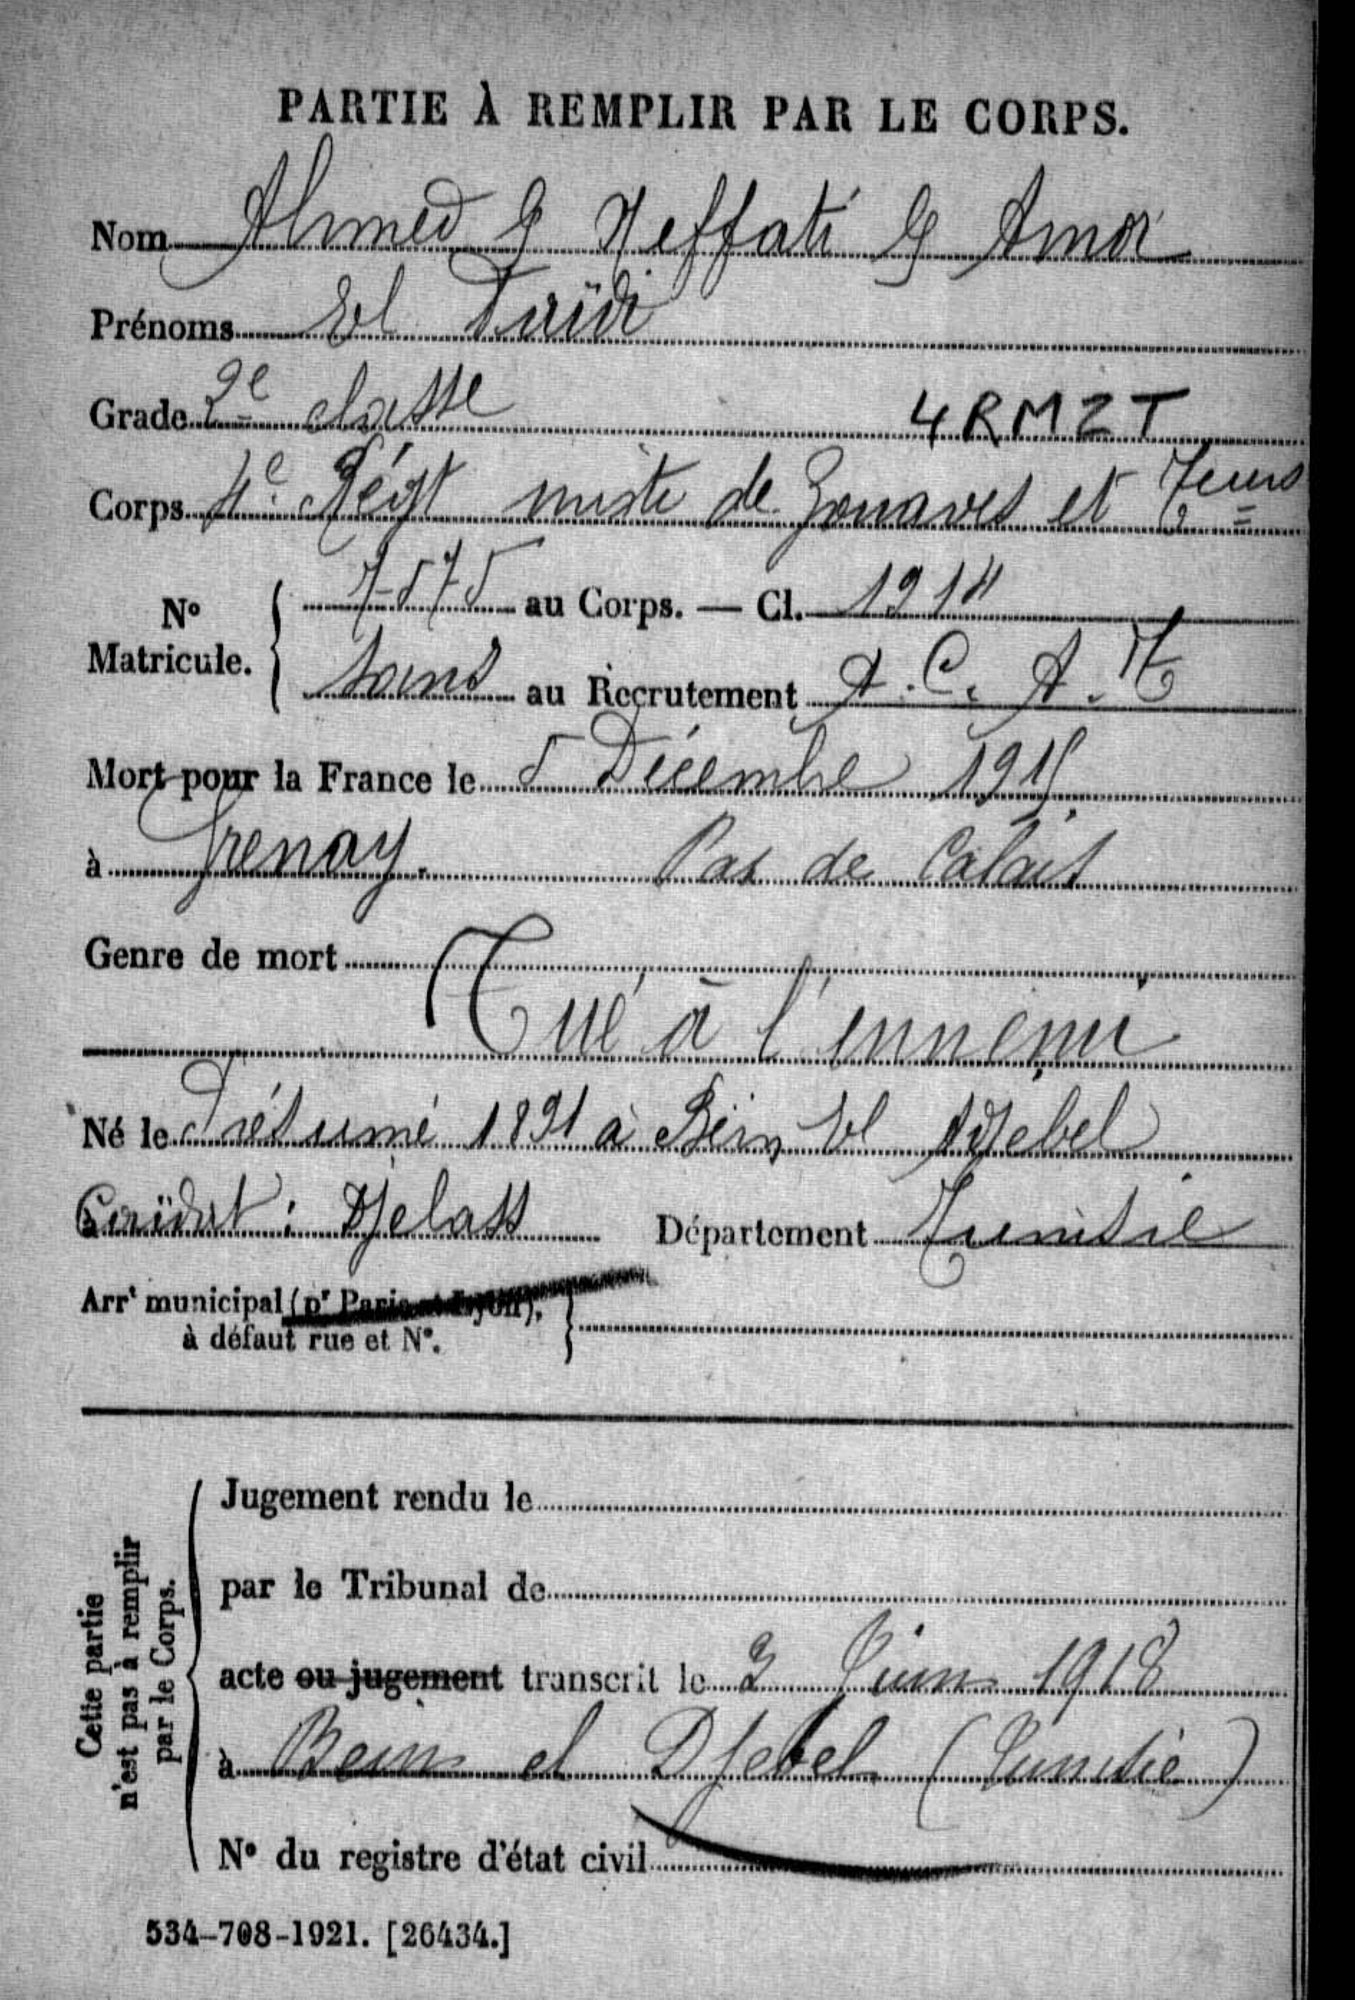 PARTIE À REMPLIR PAR LE CORPS.
Nom Ahmed B Neffati B Amor
Prénoms El
Grade 2e classe
4RMZT
Corps 4e Régt mixte de Zouaves et Teurs
No Matricule. 7575 au Corps. — Cl. 1914
sans au Recrutement A.C.A.T
Mort pour la France le 5 Décembre 1915
à Grenay. Pas de Calais
Genre de mort
Tué à l'ennemi
Né le Présumé 1891 à El Djebel
Caïdat : Djelass Département Tunisie
Arrt municipal (pr Paris et Lyon),
à défaut rue et No.
Cette partie
n'est pas à remplir
par le Corps.
Jugement rendu le
par le Tribunal de
acte ou jugement transcrit le 3 Juin 1918
à el Djebel (Tunisie)
No du registre d'état civil
534-708-1921. [26434.]